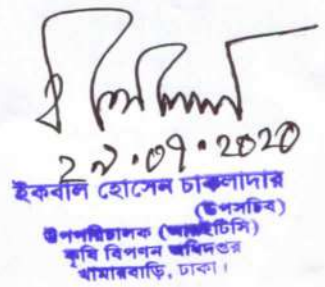 ২৯.০৭.২০২০
ইকবাল হোসেন চাকলাদার
(উপসচিব)
উপপরিচালক (আরইটিসি)
কৃষি বিপণন অধিদপ্তর
খামারবাড়ি, ঢাকা।